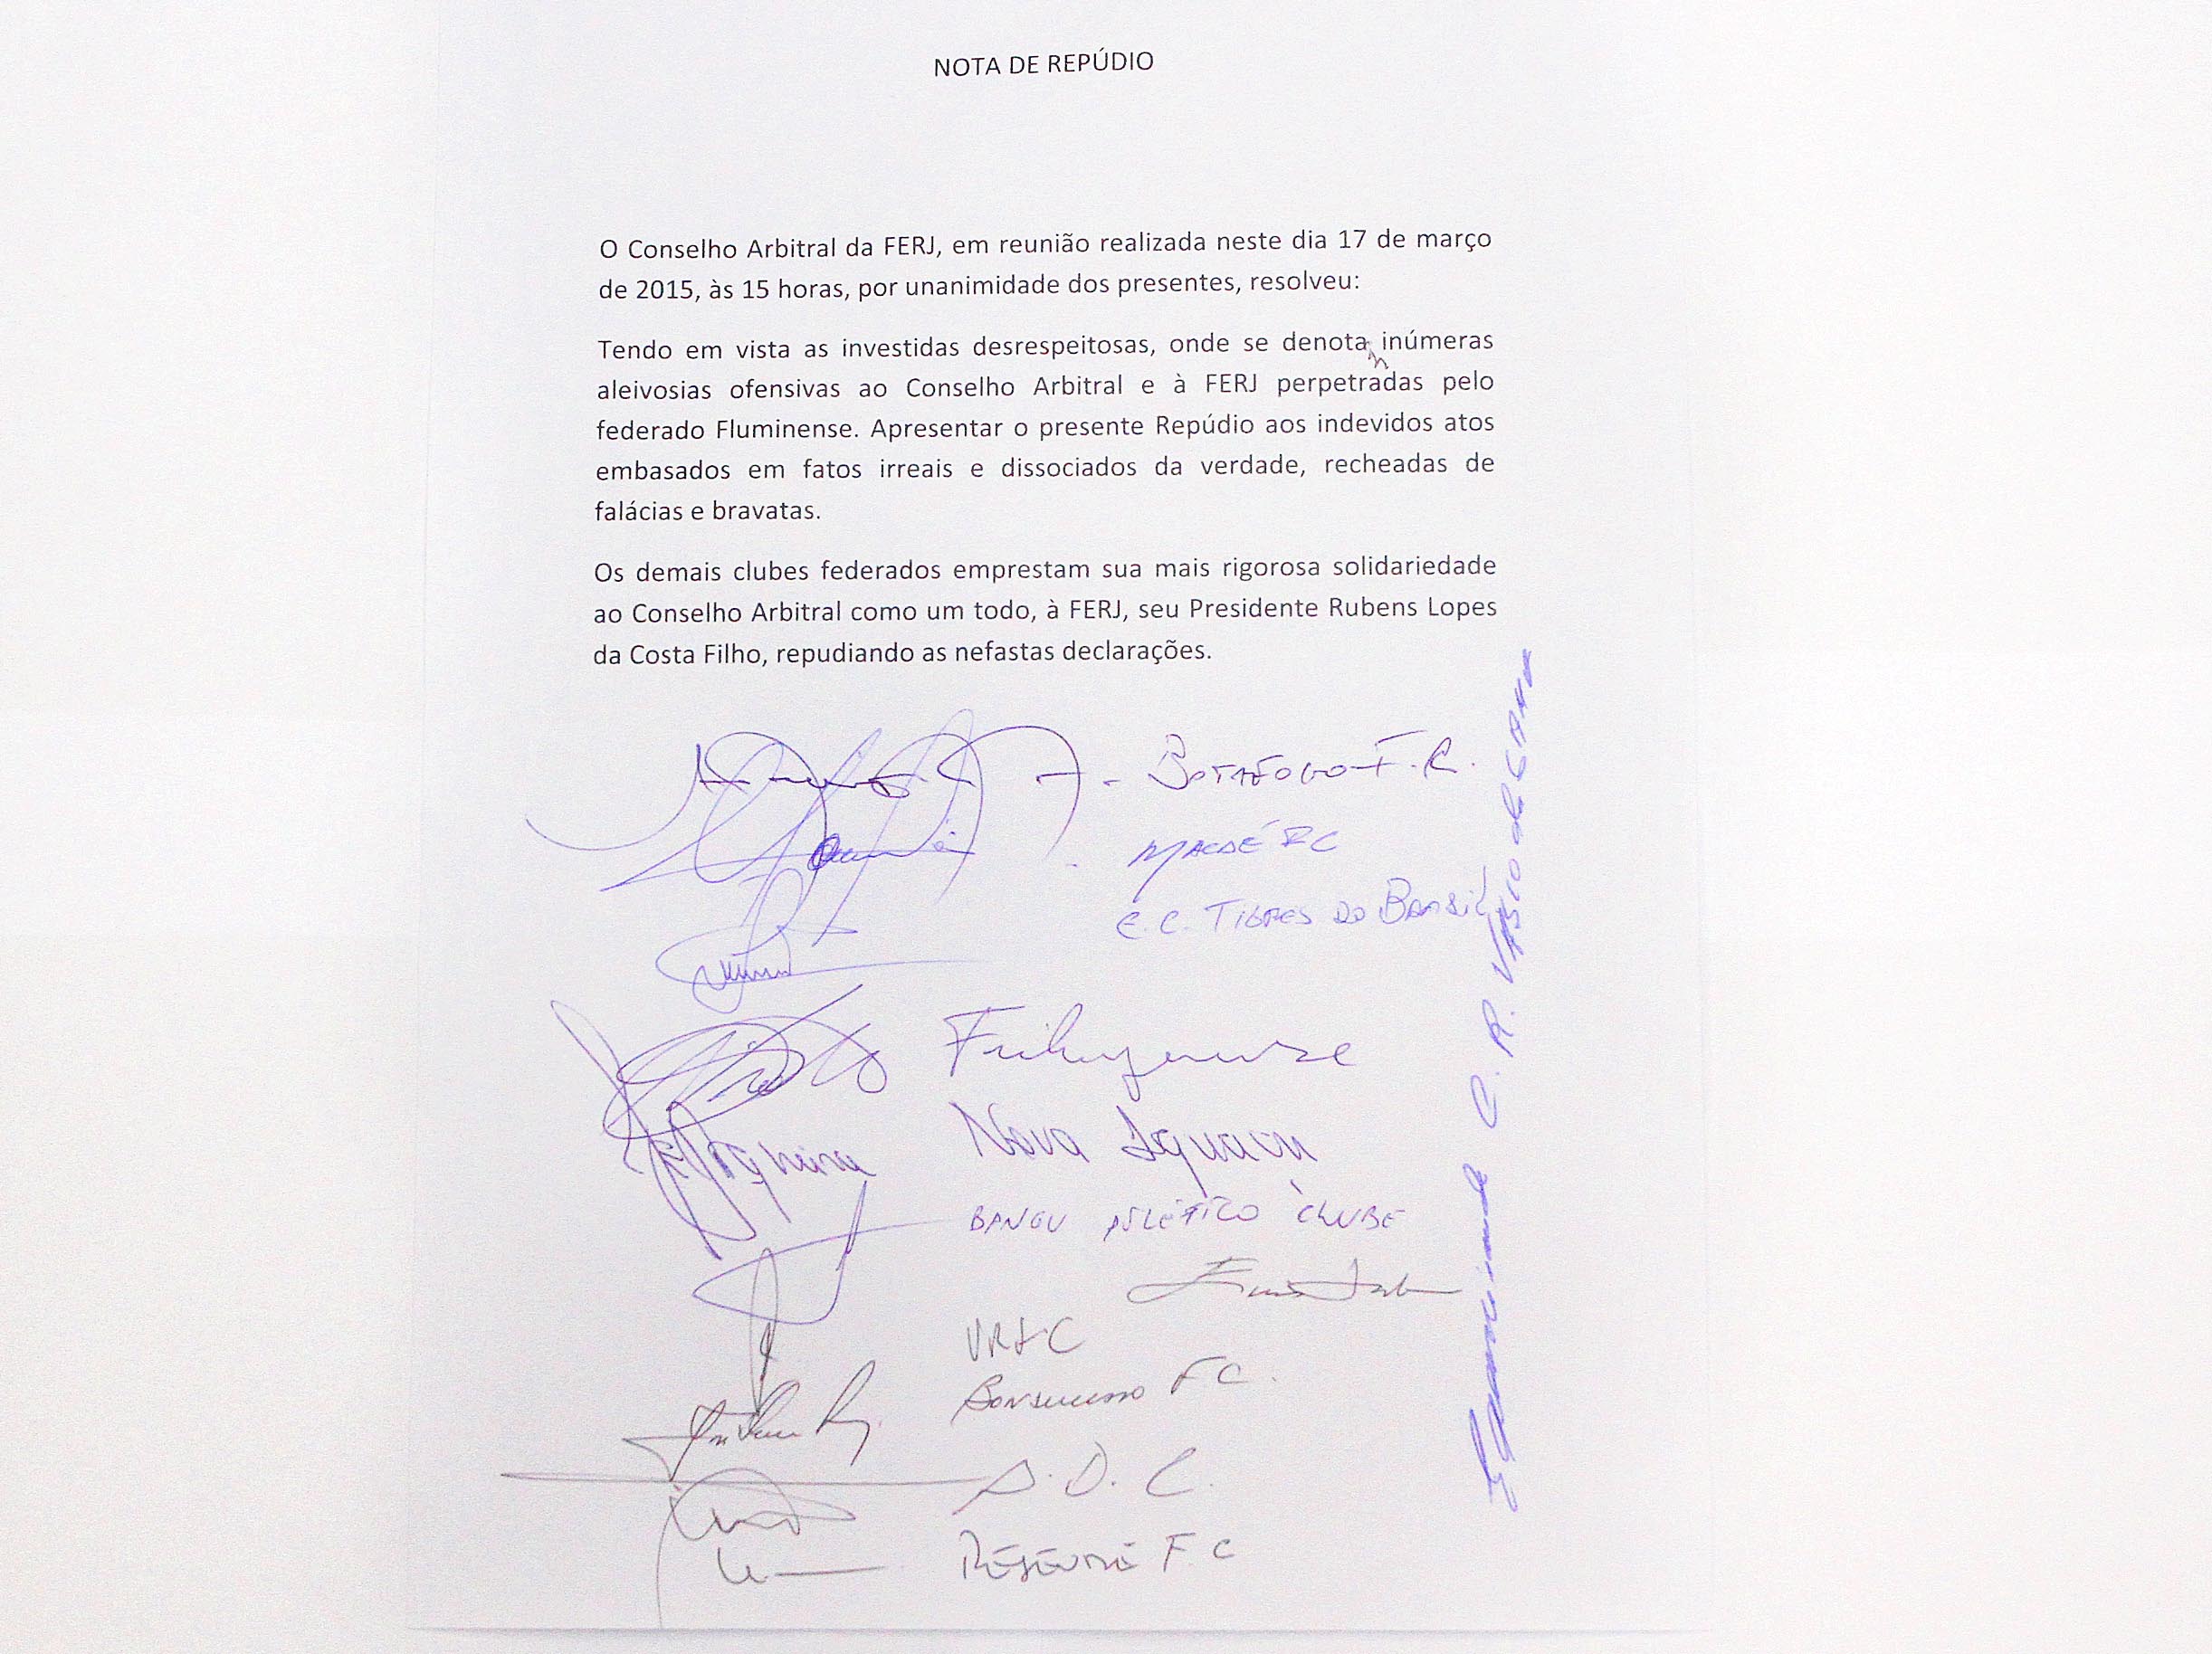 NOTA DE REPÚDIO
O Conselho Arbitral da FERJ, em reunião realizada neste dia 17 de março
de 2015, às 15 horas, por unanimidade dos presentes, resolveu:
Tendo em vista as investidas desrespeitosas, onde se denotam inúmeras
aleivosias ofensivas ao Conselho Arbitral e à FERJ perpetradas pelo
federado Fluminense. Apresentar o presente Repúdio aos indevidos atos
embasados em fatos irreais e dissociados da verdade, recheadas de
falácias e bravatas.
Os demais clubes federados emprestam sua mais rigorosa solidariedade
ao Conselho Arbitral como um todo, à FERJ, seu Presidente Rubens Lopes
da Costa Filho, repudiando as nefastas declarações.
- BOTAFOGO F.R.
- MACAÉ FC
E.C. TIGRES DO BRASIL
Friburguense
Nova Iguacu
BANGU ATLÉTICO CLUBE
VRFC
Bonsucesso FC.
A.D.C.
RESENDE F.C
C.R. VASCO da GAMA